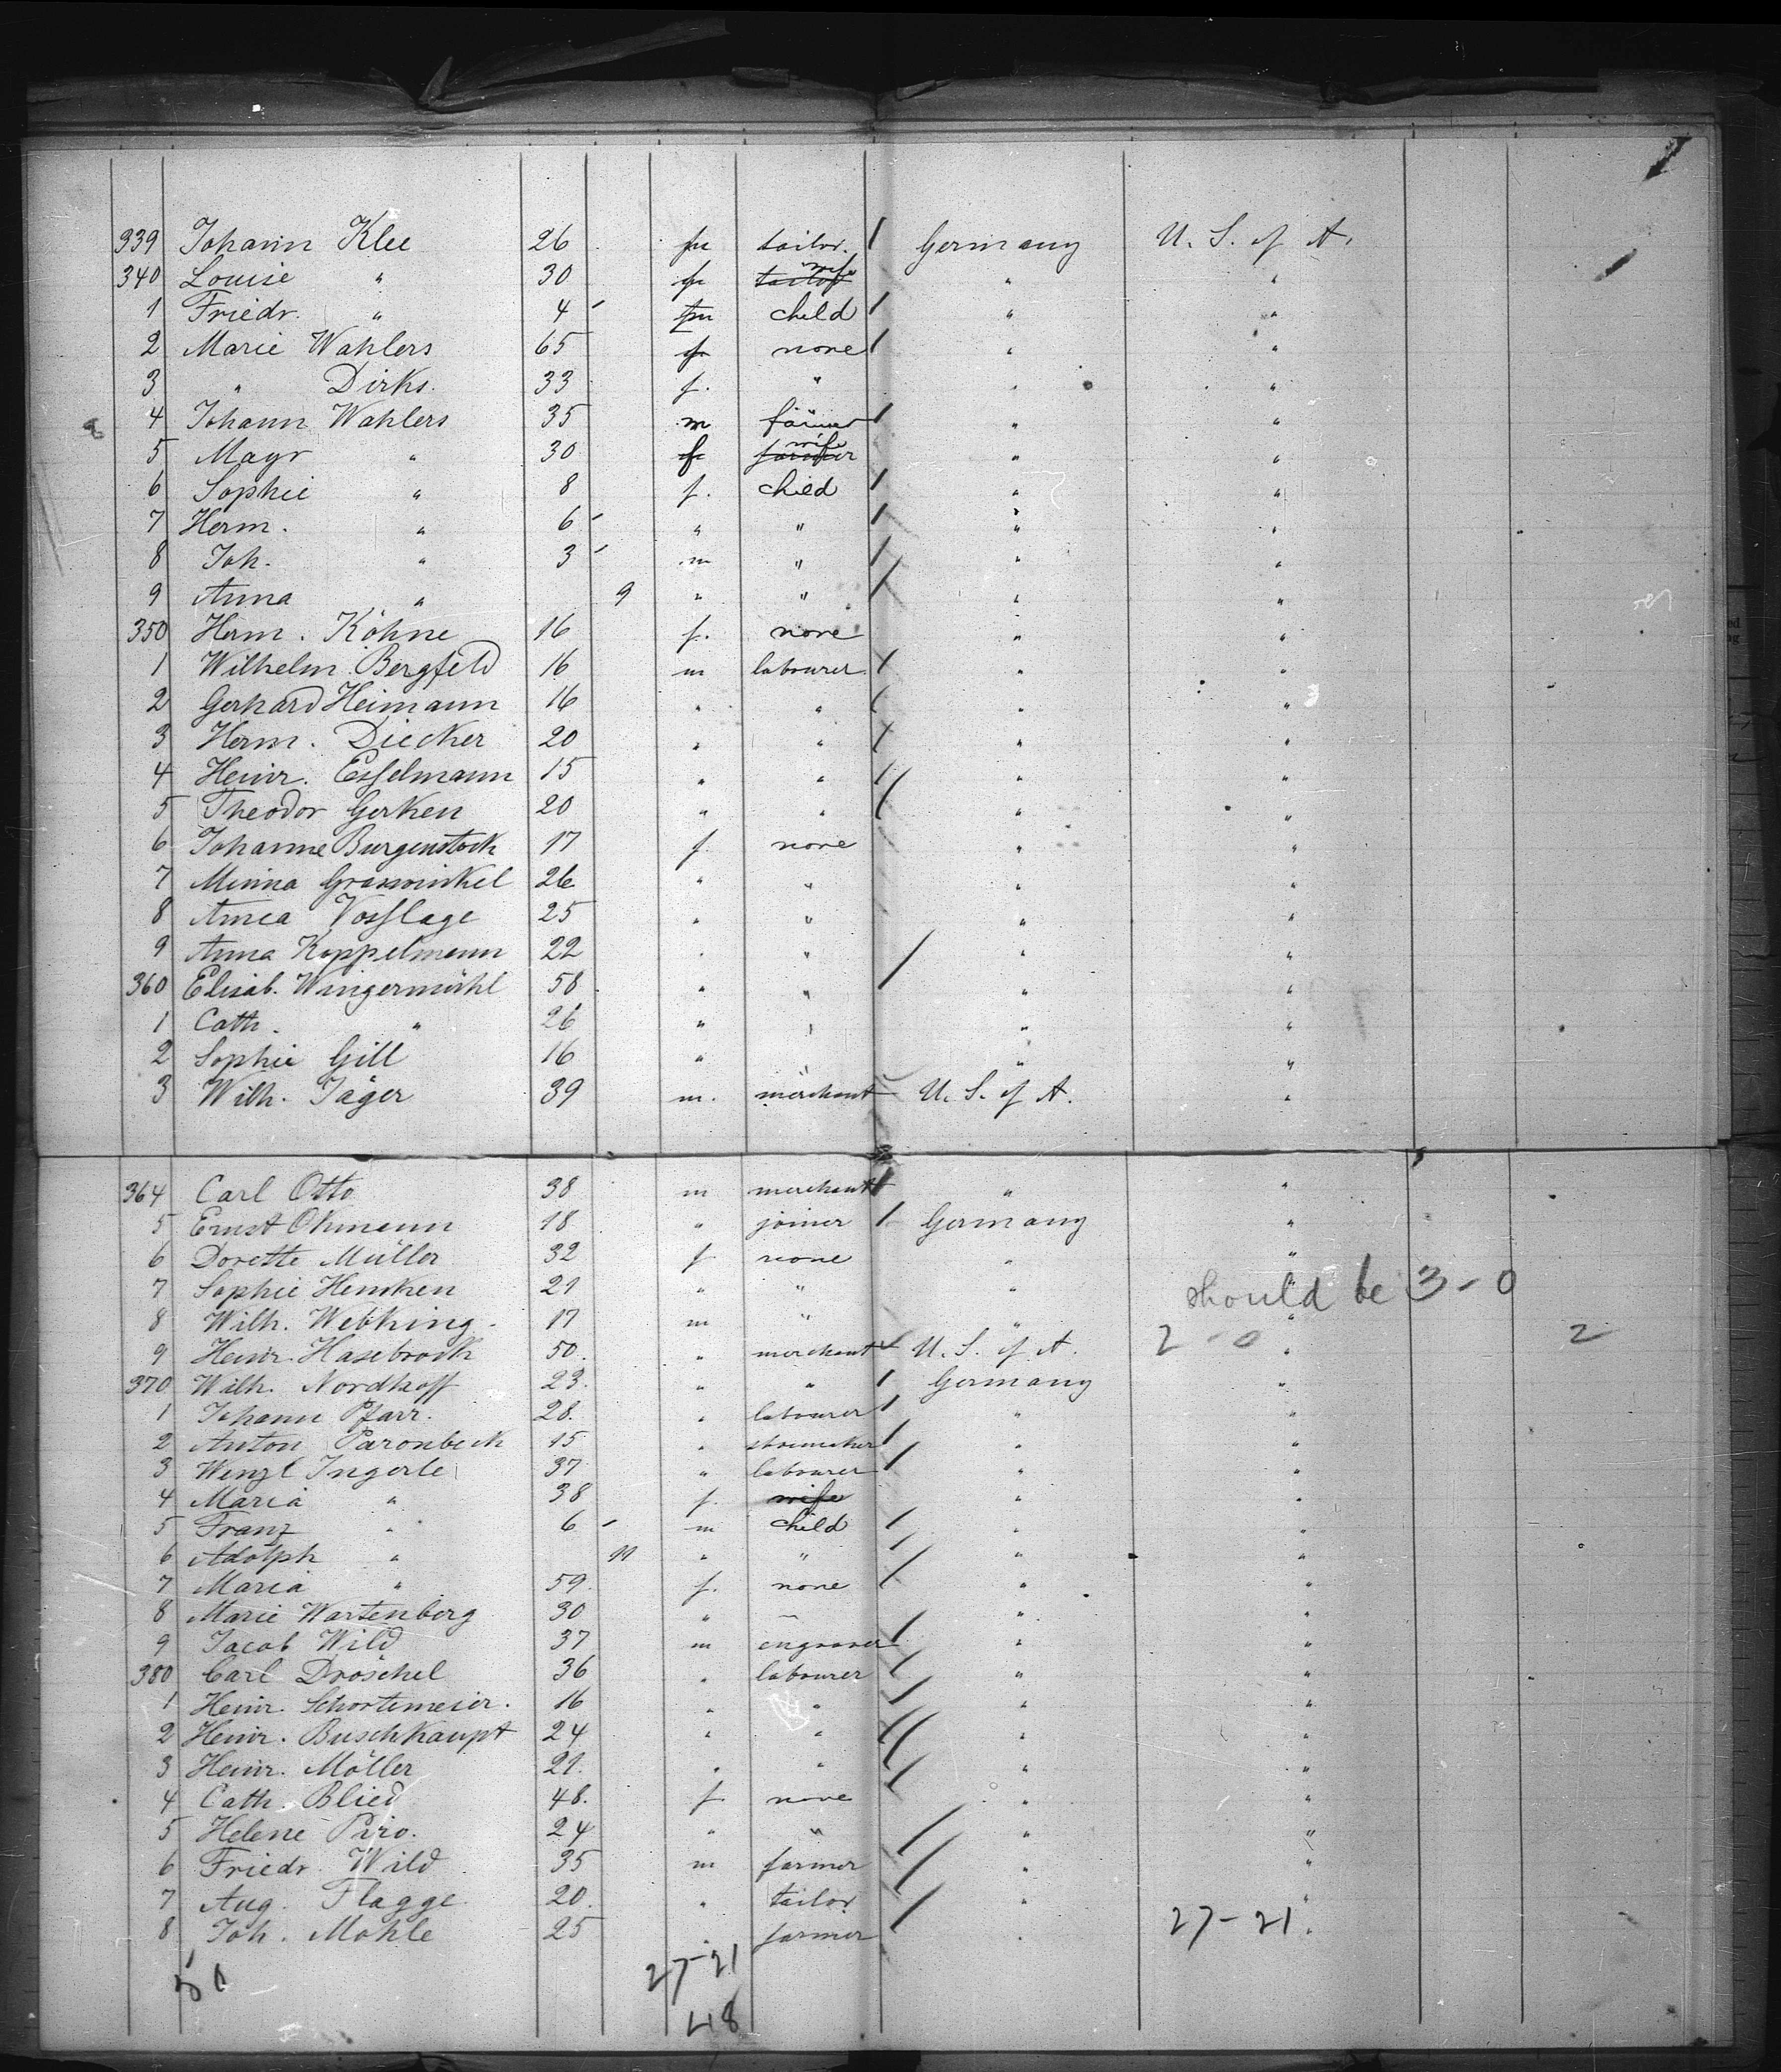 339 Johann Klee 26 m tailor. Germany U. S. of A.
340 Louise " 30 f wife " "
1 Friedr. " 4 m child " "
2 Marie Wahlers 65 f none " "
3 " Dirks. 33 f. " " "
4 Johann Wahlers 35 m farmer " "
5 Mayr " 30 f farmer wife " "
6 Sophie " 8 f. child " "
7 Herm. " 6 " " " "
8 Joh. " 3 m " " "
9 Anna " 9 " " " "
350 Herm. Köhne 16 f. none " "
1 Wilhelm Bergfeld 16 m labourer " "
2 Gerhard Heimann 16 " " " "
3 Herm. Diecker 20 " " " "
4 Heinr. Esselmann 15 " " " "
5 Theodor Gerken 20 " " " "
6 Johanne Burgenstock 17 f none " "
7 Minna Grasswinkel 26 " " " "
8 Anna Vosslage 25 " " " "
9 Anna Koppelmann 22 " " " "
360 Elisab. Wingermühl 58 " " " "
1 Cath. " 26 " " " "
2 Sophie Gill 16 " " "
3 Wilh. Jäger 39 m. merchant U. S. of A. "
364 Carl Otto 38 m merchant " "
5 Ernst Ohmann 18 " joiner Germany "
6 Dorette Müller 32 f none " "
7 Sophie Hemken 21 " " " "
should be 3-0
8 Wilh. Webking 17 m " " "
9 Heinr. Hasebrock 50. " merchant U. S. of A. 2-0 " 2
370 Wilh. Nordhoff 23. " " Germany "
1 Johann Pfarr. 28. " labourer " "
2 Anton Paronbeck 15 " shoemaker " "
3 Wenzl Ingerle 37 " labourer " "
4 Maria " 38 f. wife " "
5 Franz " 6 m child " "
6 Adolph " 11 " " " "
7 Maria " 59. f. none " "
8 Marie Wartenberg 30 " " "
9 Jacob Wild 37 m engraver " "
380 Carl Dröschel 36 " labourer " "
1 Heinr. Schortemeier. 16 " " " "
2 Heinr. Buschkaupt 24 " " " "
3 Heinr. Möller 21. " " " "
4 Cath. Blied 48. f. none " "
5 Helene Piro. 24 " " " "
6 Friedr. Wild 35 m farmer " "
7 Aug. Flagge 20. " tailor " "
8 Joh. Mohle 25 " farmer " 27-21.
50 27-21
48